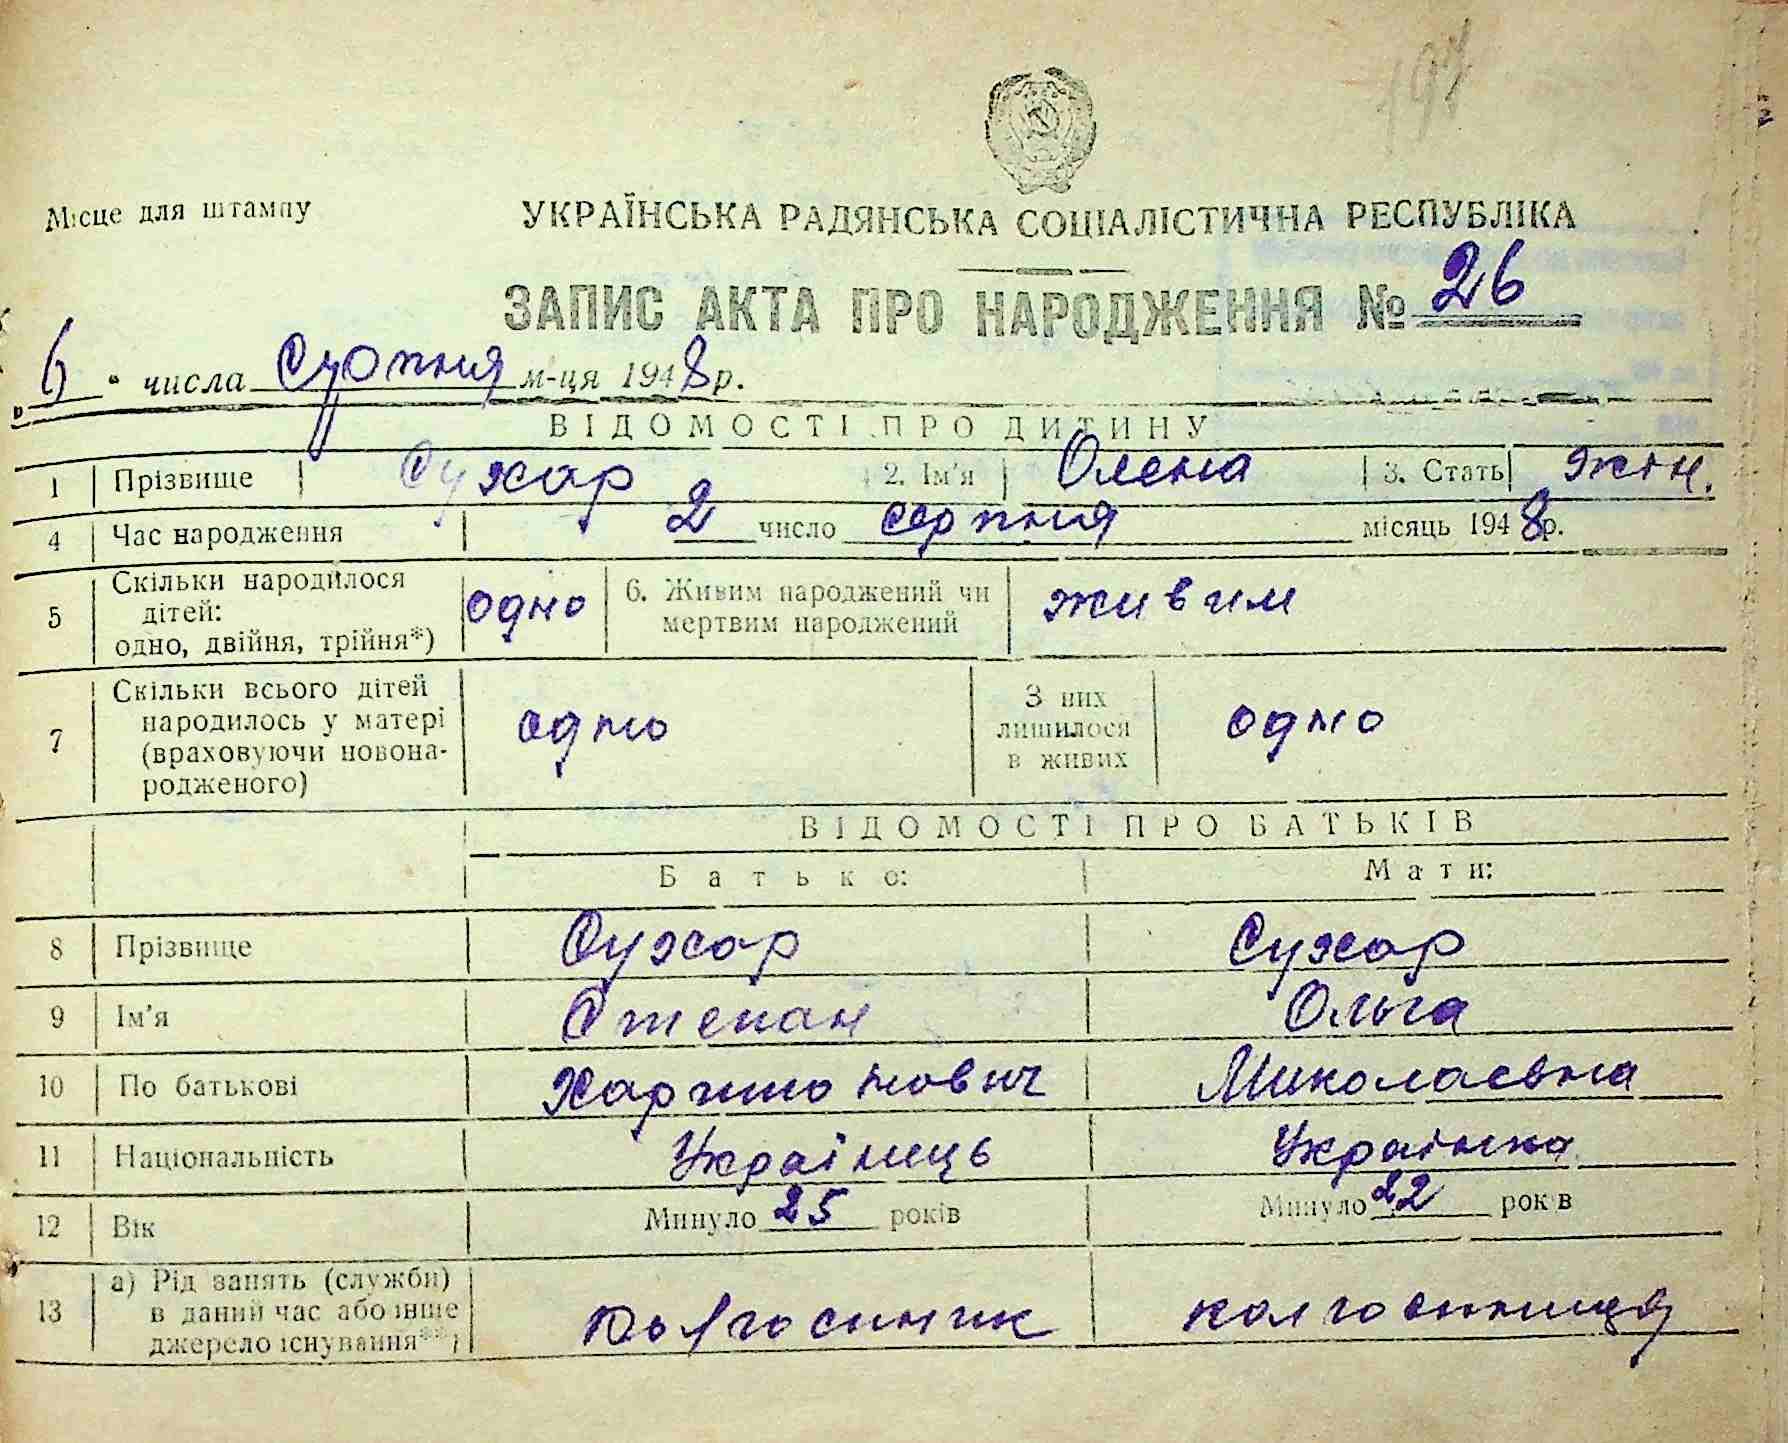 197
Місце для штампу
УКРАЇНСЬКА РАДЯНСЬКА СОЦІАЛІСТИЧНА РЕСПУБЛІКА
ЗАПИС АКТА ПРО НАРОДЖЕННЯ № 26
„ 6 " числа Серпня м-ця 1948 р.
ВІДОМОСТІ ПРО ДИТИНУ
1 Прізвище Сухар 2. Ім'я Олена 3. Стать жін.
4 Час народження 2 число серпня місяць 1948 р.
5 Скільки народилося дітей: одно, двійня, трійня*) одно 6. Живим народжений чи мертвим народжений живим
7 Скільки всього дітей народилось у матері (враховуючи новонародженого) одно З них лишилося в живих одно
ВІДОМОСТІ ПРО БАТЬКІВ
Батько: Мати:
8 Прізвище Сухар Сухар
9 Ім'я Степан Ольга
10 По батькові Харитонович Миколаєвна
11 Національність Українець Українка
12 Вік Минуло 25 років Минуло 22 років
13 а) Рід занять (служби) в даний час або інше джерело існування**) колгоспник колгоспниця